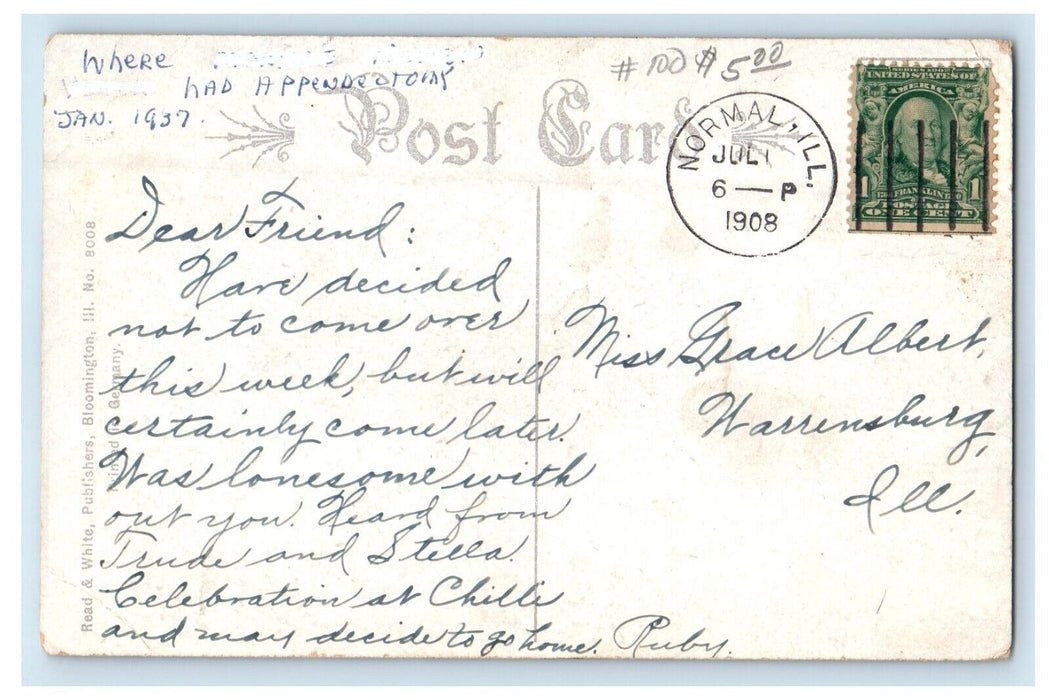 Where
had Appendectomy
Jan. 1937.
# 100 $ 5.00
Post Card
NORMAL, ILL.
JUL 1
6 — P
1908
SERIES 1902
UNITED STATES OF
AMERICA
1 FRANKLIN 1
POSTAGE
ONE CENT
Dear Friend:
Have decided
not to come over
this week, but will
certainly come later.
Was lonesome with
out you. Heard from
Trude and Stella.
Celebration at Chilli
and may decide to go home. Ruby.
Miss Grace Albert,
Warrensburg,
Ill.
Read & White, Publishers, Bloomington, Ill. No. 8008
Printed in Germany.